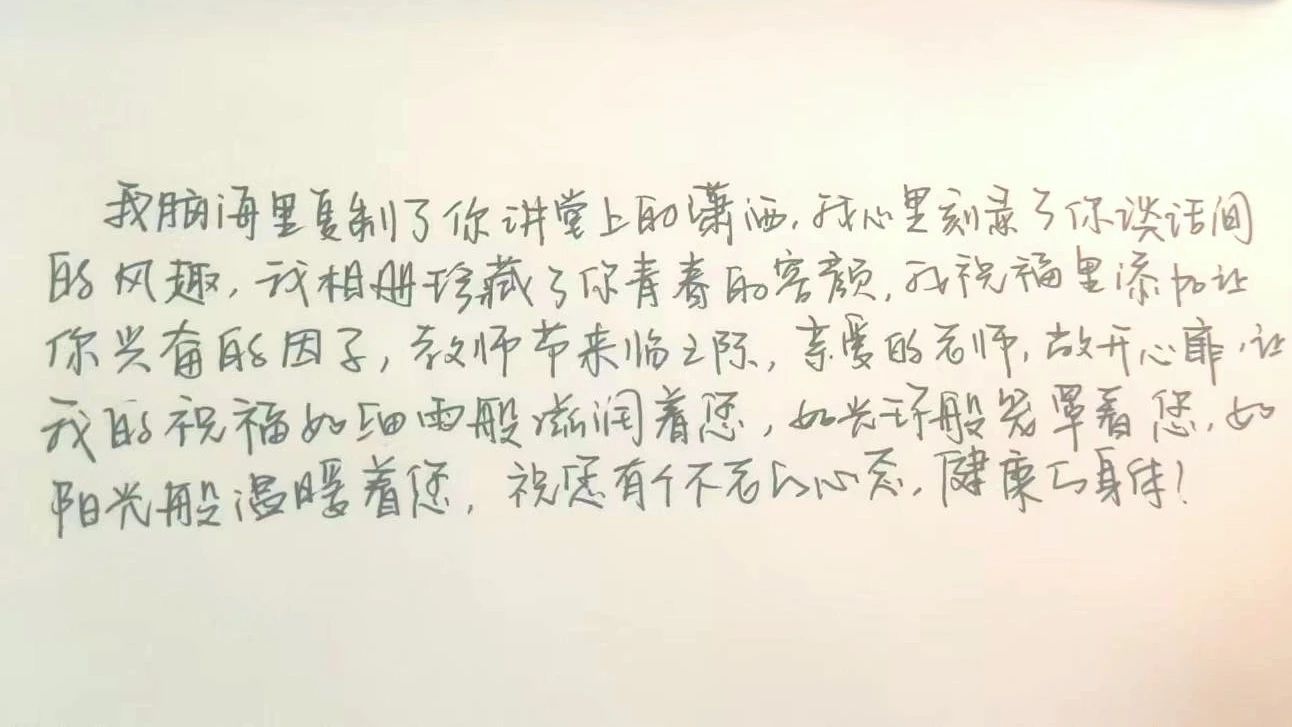 我脑海里复制了你讲堂上的潇洒,我心里刻录了你谈话间
的风趣,我相册珍藏了你青春的容颜,我祝福里添加让
你兴奋的因子,教师节来临之际,亲爱的老师,敞开心扉,让
我的祝福如细雨般滋润着您,如光环般笼罩着您,如
阳光般温暖着您,祝您有个不老的心态,健康的身体!